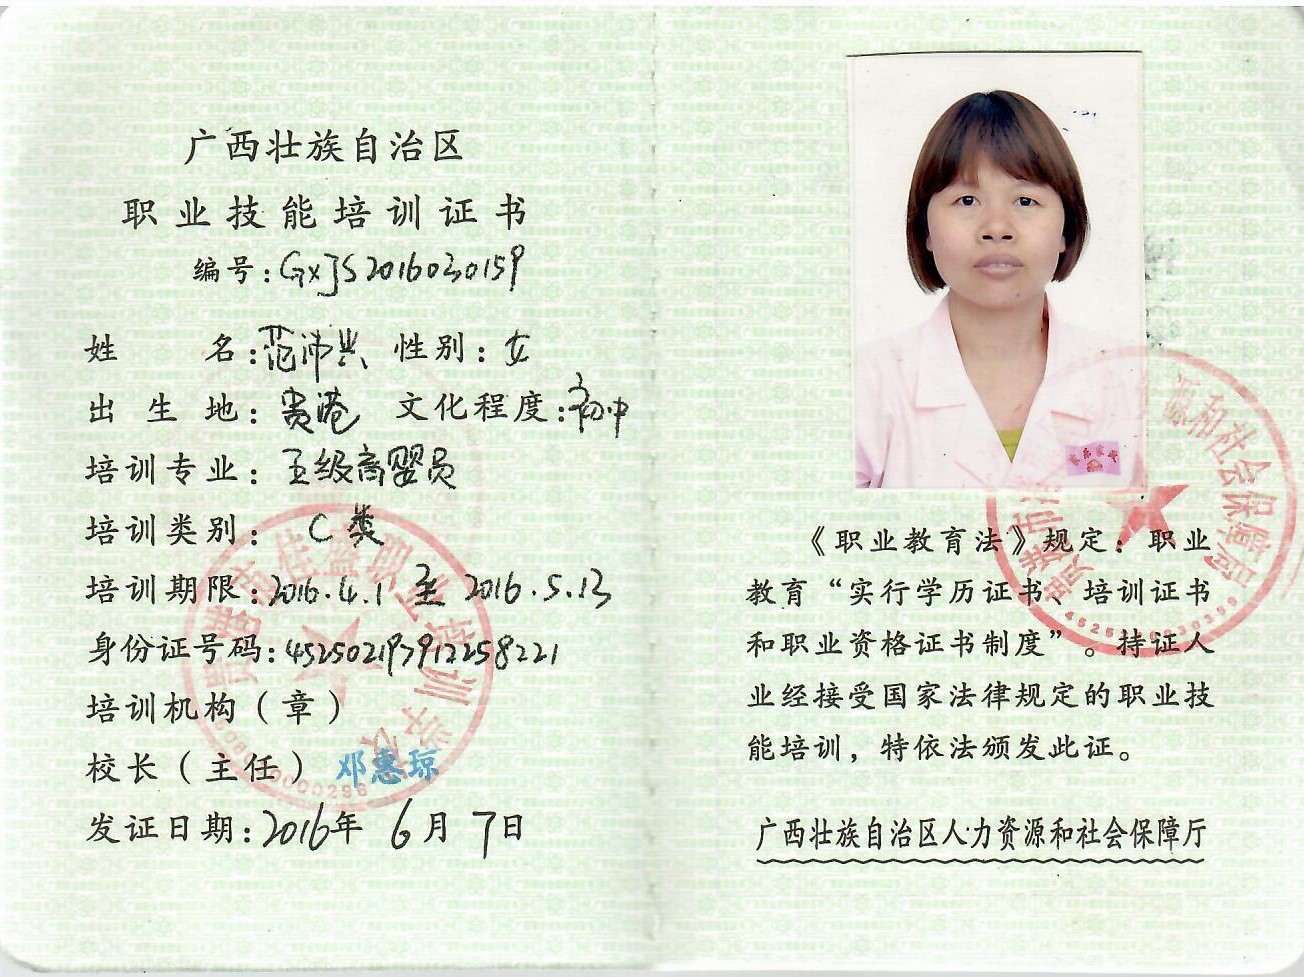 广西壮族自治区
职业技能培训证书
编号:GXJS2016030159
姓 名:范沛兴 性别:女
出生地:贵港 文化程度:初中
培训专业:五级育婴员
培训类别:C类
培训期限:2016.4.1至2016.5.13
身份证号码:452502197912258221
培训机构(章)
校长(主任)邓惠琼
发证日期:2016年6月7日
职业培训学校
《职业教育法》规定:职业
教育“实行学历证书、培训证书
和职业资格证书制度”。持证人
业经接受国家法律规定的职业技
能培训,特依法颁发此证。
广西壮族自治区人力资源和社会保障厅
源和社会保障局